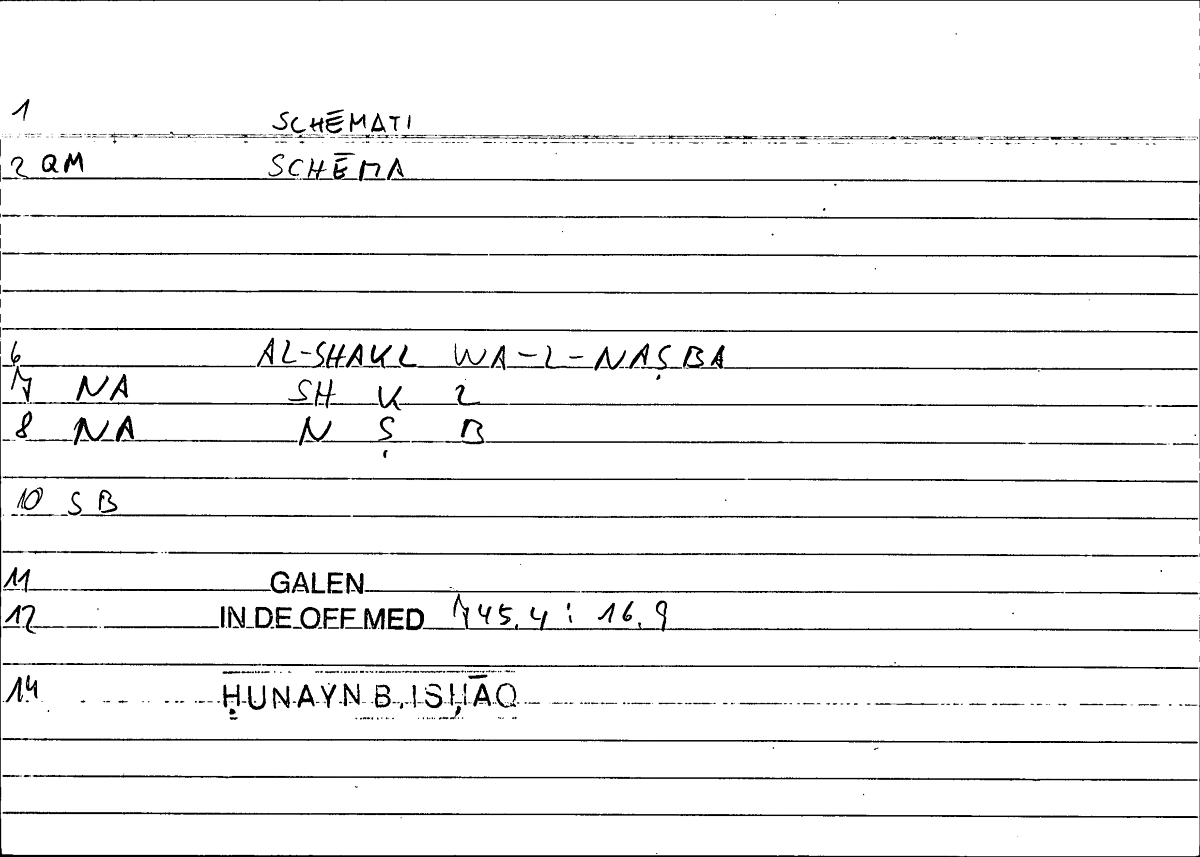 1 SCHĒMATI
2 QM SCHĒMA
6 AL-SHAKL WA-L-NAṢBA
7 NA SH K L
8 NA N Ṣ B
10 SB
11 GALEN
12 IN DE OFF MED 745.4 : 16.9
14 ḤUNAYN B. ISḤĀQ